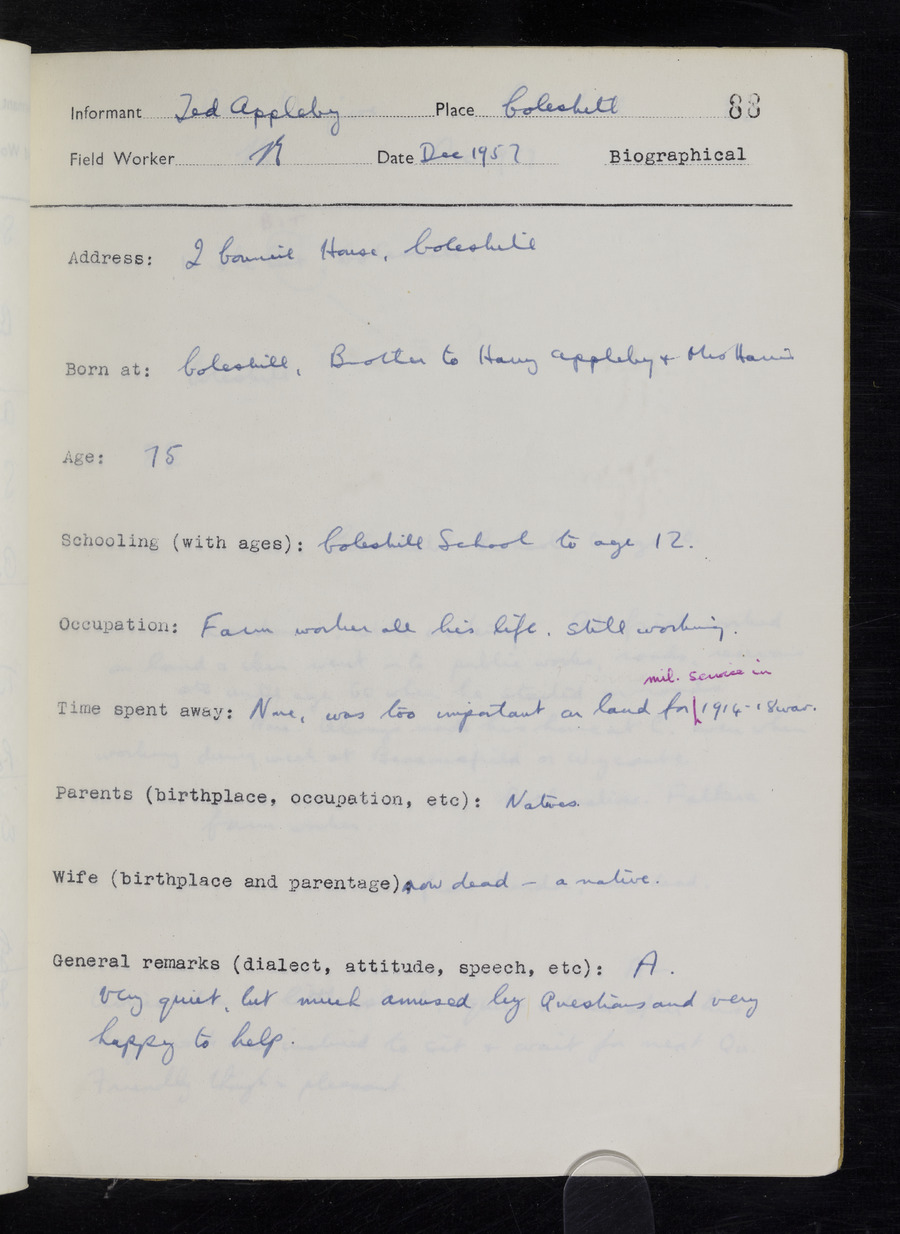 Informant Ted Appleby Place Coleshill 88
Field Worker R Date Dec 1957 Biographical
Address: 2 Council House, Coleshill
Born at: Coleshill, Brother to Harry Appleby & Mrs Harris
Age: 75
Schooling (with ages): Coleshill School to age 12.
Occupation: Farm worker all his life. Still working.
mil. service in
Time spent away: None, was too important on land for 1914-18 war.
Parents (birthplace, occupation, etc): Natives.
Wife (birthplace and parentage) now dead – a native.
General remarks (dialect, attitude, speech, etc): A.
Very quiet, but much amused by Questions and very
happy to help.